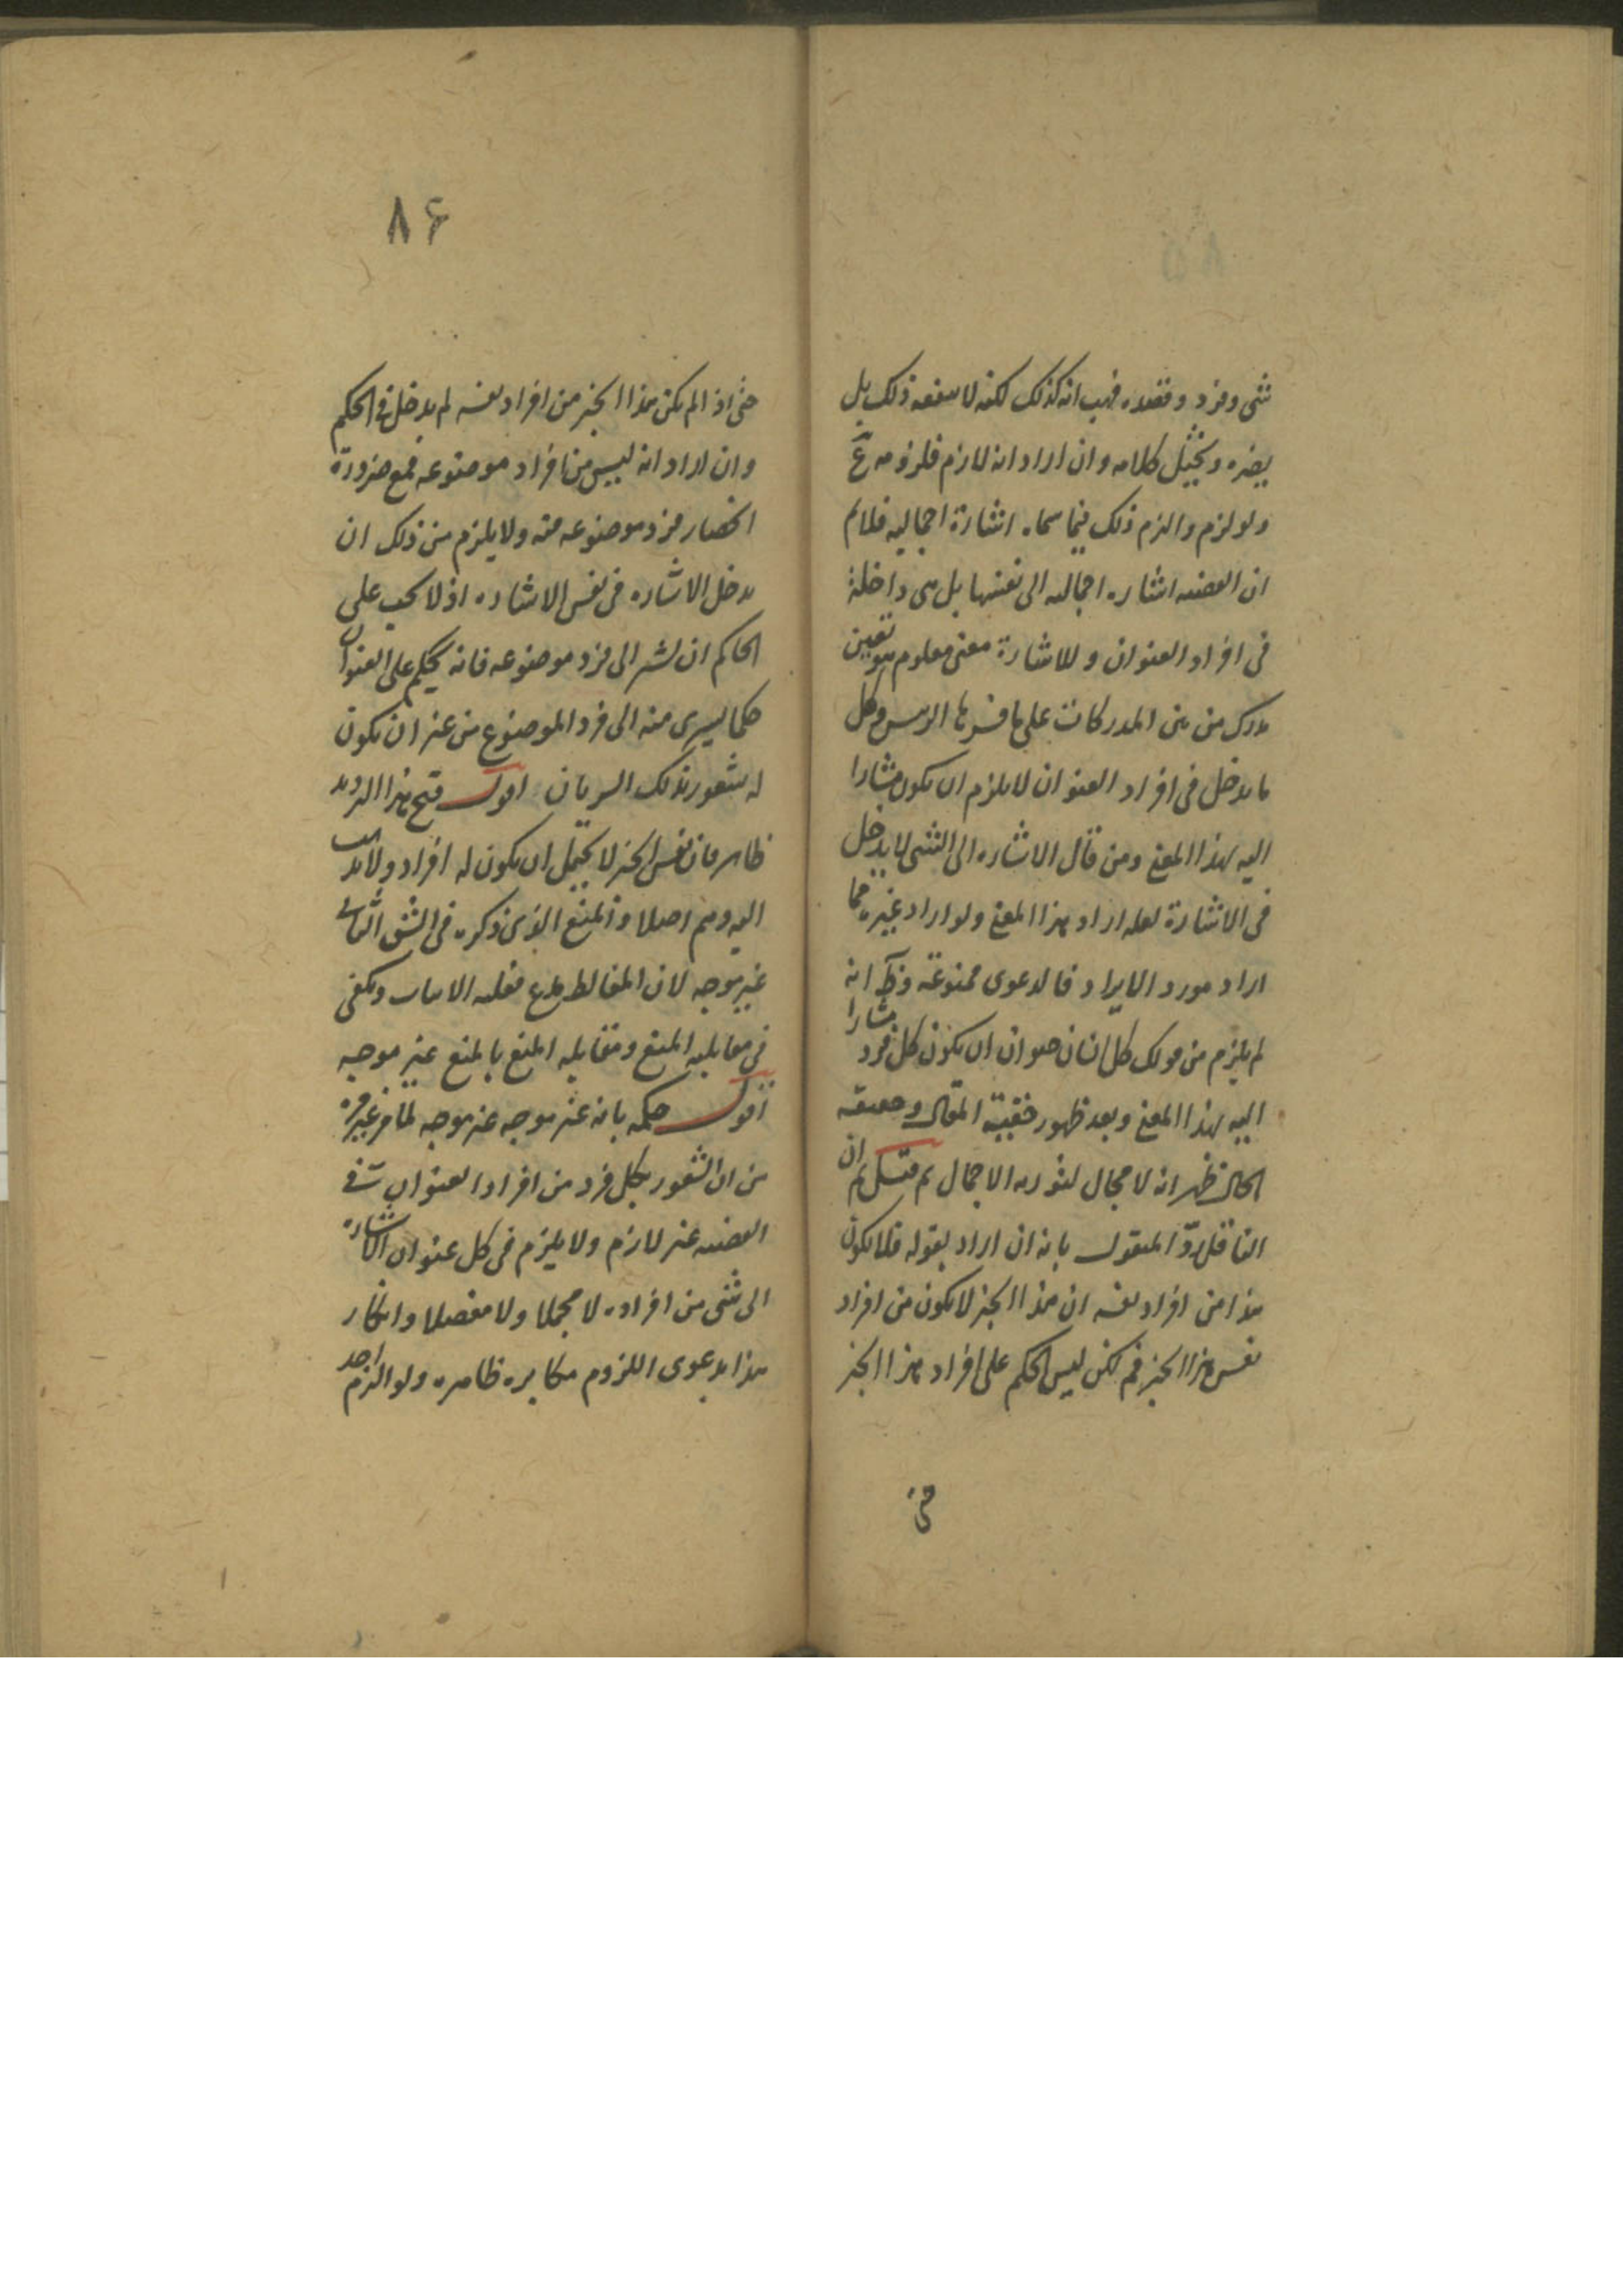 شی وفرد وقصده فهب انه کذلک لکنه لا ینفعه ذلک بل
یضره و یخیل کلامه وان اراد انه لازم فلزومه مم
ولو لزم والزم ذلک فیما سماه اشارة اجمالیه فلا نم
ان القضیه اشاره اجمالیه الی نفسها بل هی داخلة
فی افراد العنوان وللاشارة معنی معلوم هو تعیین
مدرک من بین المدرکات علی ما فسرها الرئیس وکل
ما یدخل فی افراد العنوان لا یلزم ان یکون مشارا
الیه بهذا المعنی ومن قال الاشاره الی الشی لا یدخل
فی الاشارة لعله اراد بهذا المعنی ولو اراد غیره مما
اراد مورد الایراد فالدعوی ممنوعة وظ انه
لم یلزم من قولک کل انسان حیوان ان یکون کل فرد مشارا
الیه بهذا المعنی وبعد ظهور حقیة المقال وحقیقه
الحال ظهر انه لا مجال لثوره الاجمال ثم قیل ثم ان
الناقل رد المنقول بانه ان اراد بقوله فلا یکون
هذا من افراد نفسه ان هذا الخبر لا یکون من افراد
نفس هذا الخبر فم لکن لیس الحکم علی افراد هذا الخبر
حتی
۸۶
حتی اذا لم یکن هذا الخبر من افراد نفسه لم یدخل فی الحکم
وان اراد انه لیس من افراد موضوعه فمع ضرورة
انحصار فرد موضوعه فیه ولا یلزم من ذلک ان
یدخل الاشاره فی نفس الاشاره اذ لا یجب علی
الحاکم ان یشیر الی فرد موضوعه فانه یحکم علی العنوان
حکما یسری منه الی فرد الموضوع من غیر ان یکون
له شعور بذلک السریان اقول قبح هذا التردید
ظاهر فان نفس الخبر لا یحتمل ان یکون له افراد ولا یذهب
الیه وهم اصلا والمنع الذی ذکره فی الشق الثانی
غیر موجه لان المغالط مدع فعلیه الاثبات ویکفی
فی مقابلیه المنع ومقابله المنع بالمنع غیر موجه
اقول حکمه بانه غیر موجه غیر موجه لما مر غیر مرة
من ان الشعور بکل فرد من افراد العنوان فی
القضیه غیر لازم ولا یلزم فی کل عنوان الاشاره
الی شی من افراده لا مجملا ولا مفصلا وانکار
هذا بدعوی اللزوم مکابره ظاهره ولو التزم احد